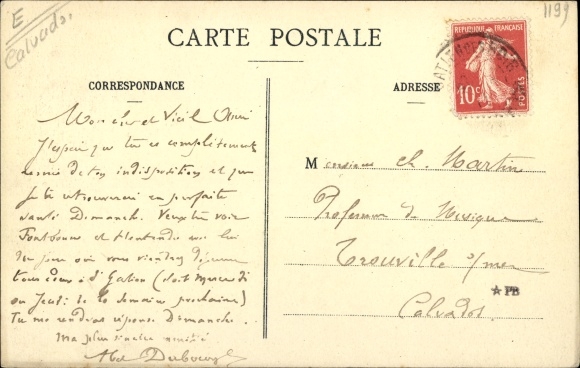 E
Calvados.
1199
CARTE POSTALE
REPUBLIQUE FRANÇAISE
10c
POSTES
CORRESPONDANCE
ADRESSE
Mon cher et Vieil Ami
J'espère que tu es complètement
remis de ton indisposition et que
je te retrouverai en parfaite
santé Dimanche. Veux tu voir
et lui
du jour où vous viendrez déjeuner
tous deux à d' (soit Mercredi
ou Jeudi de la semaine prochaine)
Tu me rendras réponse Dimanche...
Ma plus sincère amitié
Monsieur Ch. Martin
Professeur de Musique
Trouville s/mer
Calvados
★ PB